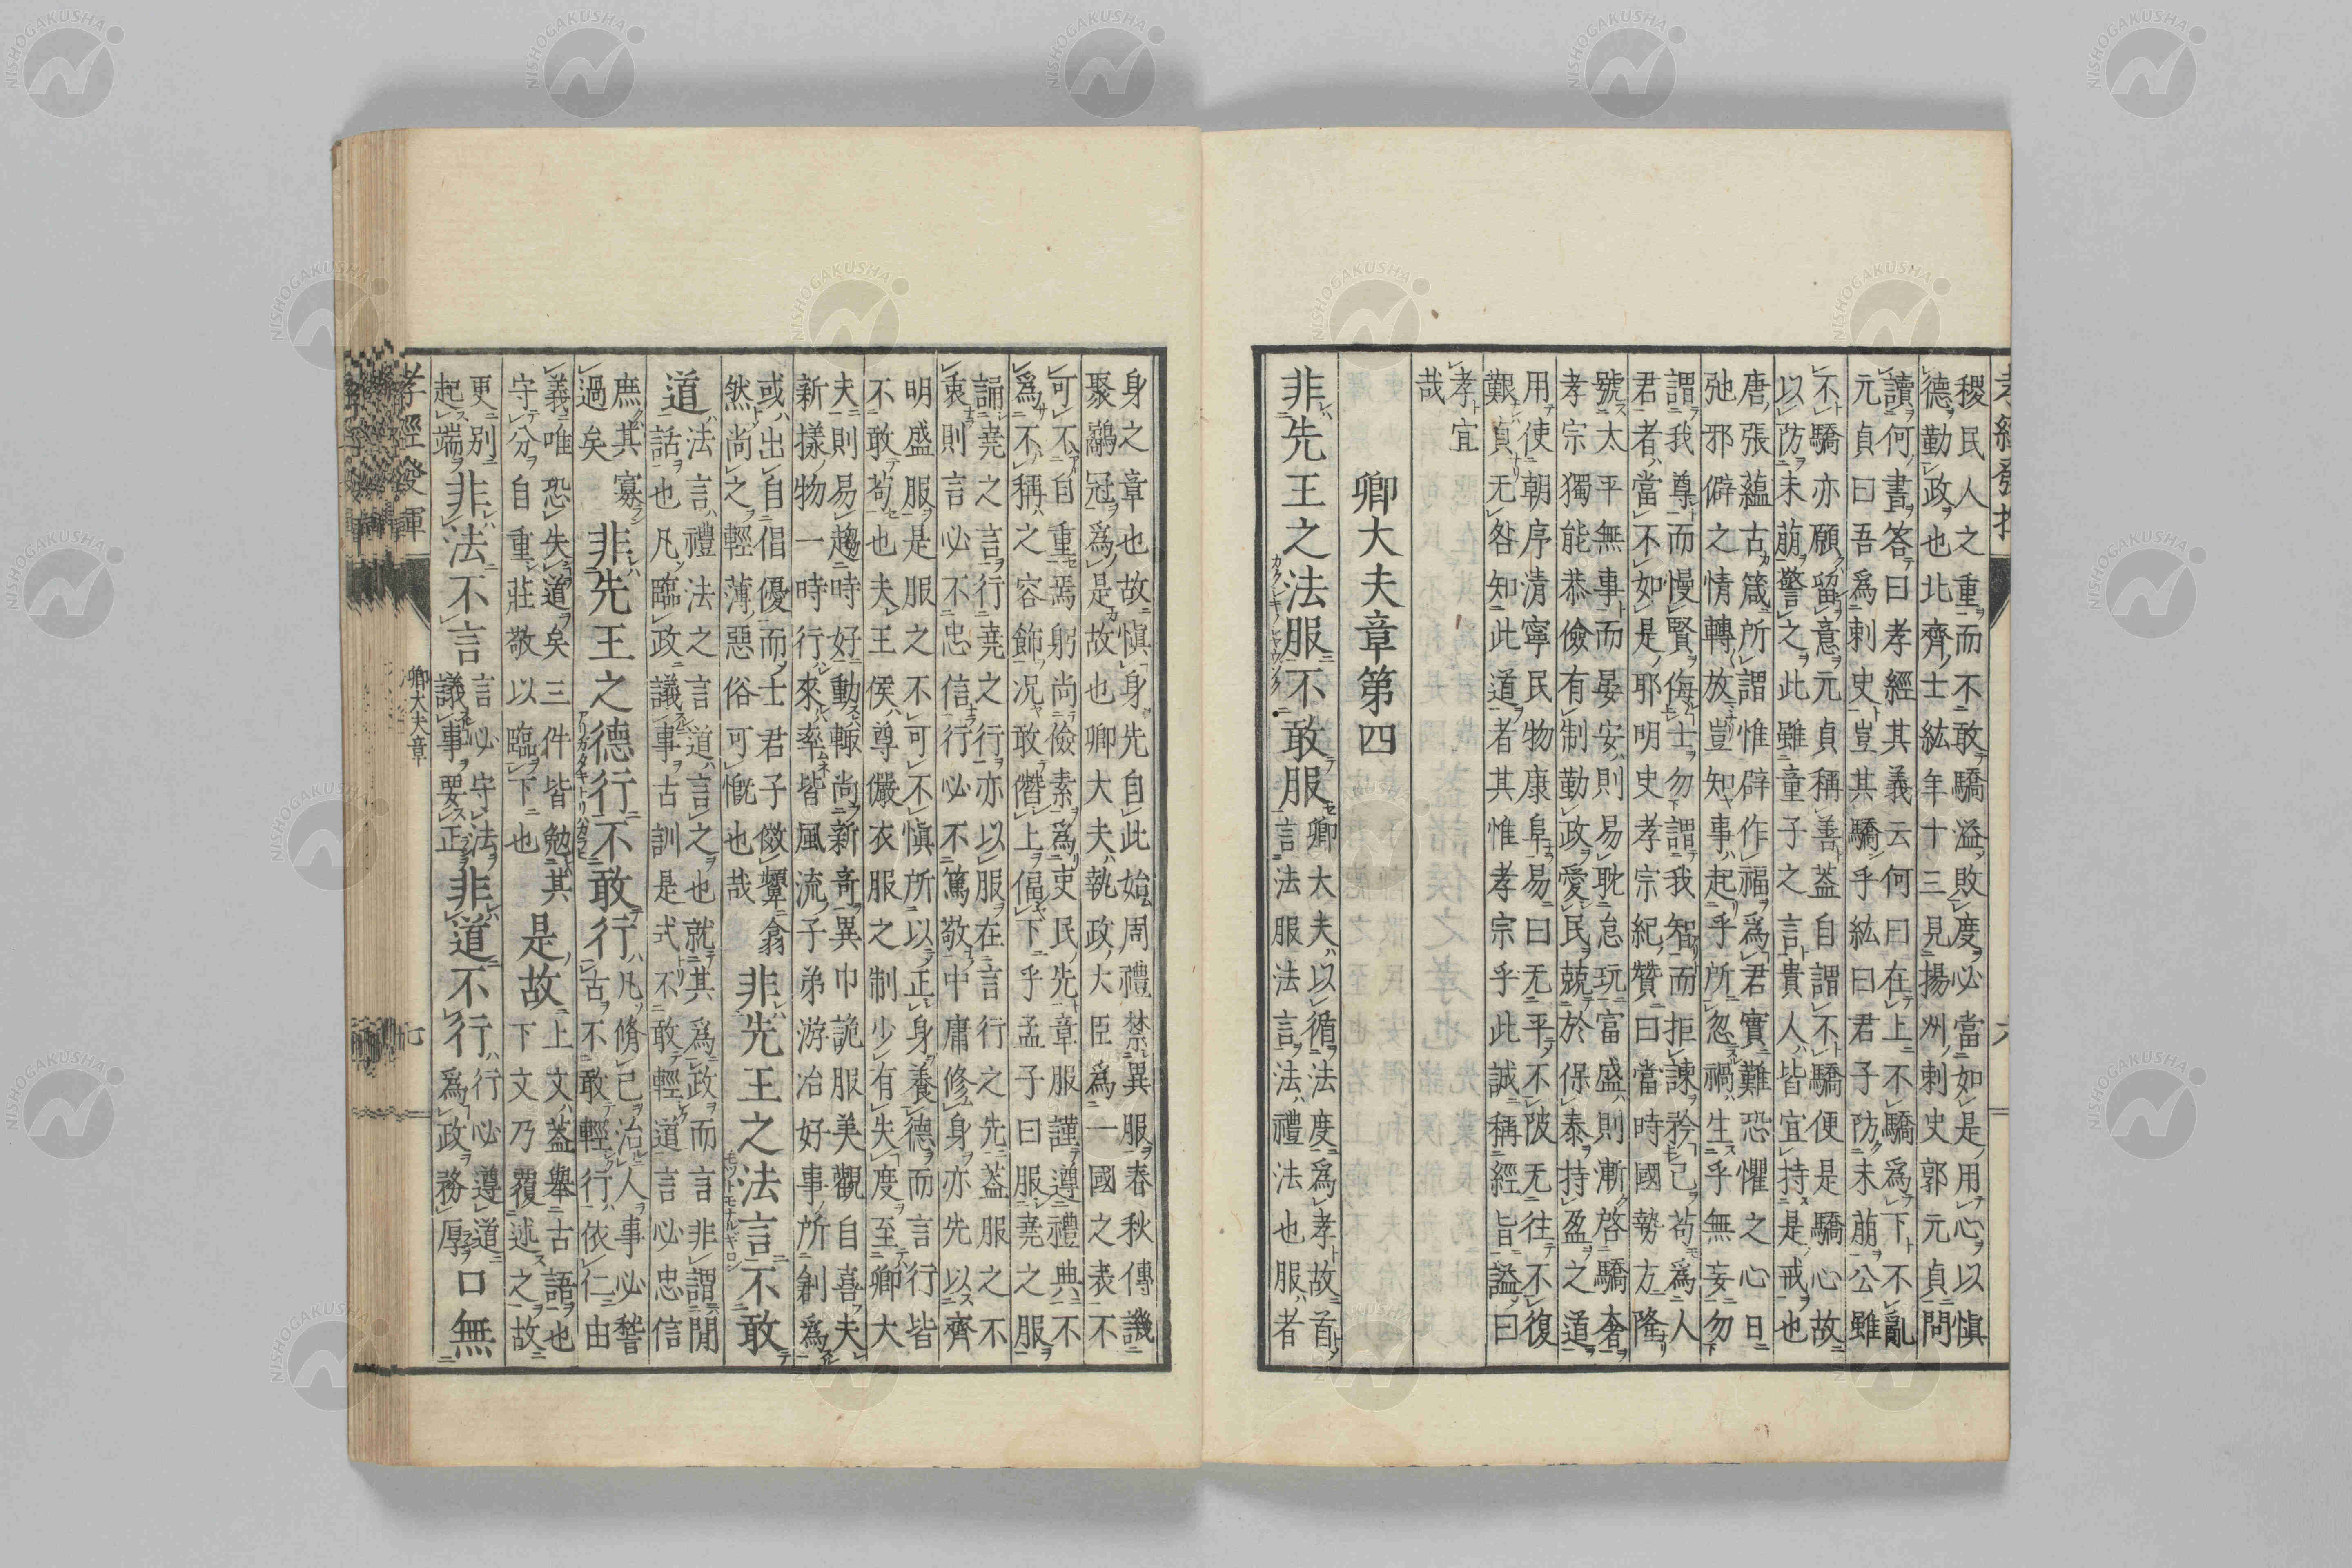 稷民人之重而不敢驕溢敗度必當如是用心以愼
德勤政也北齊士紘年十三見揚州刺史郭元貞問
讀何書答曰孝經其義云何曰在上不驕爲下不亂
元貞曰吾爲刺史豈其驕乎紘曰君子防未萠公雖
不驕亦願留意元貞稱善蓋自謂不驕便是驕心故
以防未萠警之此雖童子之言貴人皆宜持是戒也
唐張蘊古箴所謂惟辟作福爲君實難恐懼之心日
弛邪僻之情轉放豈知事起乎所忽禍生乎無妄勿
謂我尊而慢賢侮士勿謂我智而拒諫矜己苟爲人
君者當不如是耶明史孝宗紀贊曰當時國勢方隆
號太平無事而晏安則易耽怠玩富盛則漸啓驕奢
孝宗獨能恭儉有制勤政愛民兢於保泰持盈之道
用使朝序清寧民物康阜易曰无平不陂无往不復
艱貞无咎知此道者其惟孝宗乎此誠稱經旨謚曰
孝宜
哉
卿大夫章第四
非先王之法服不敢服
卿大夫以循法度爲孝故首
言法服法言法禮法也服者
身之章也故愼身先自此始周禮禁異服春秋傳譏
聚鷸冠爲是故也卿大夫執政大臣爲一國之表不
可不自重焉躬尚儉素爲吏民先章服謹遵禮典不
爲不稱之容飾況敢僭上偪下乎孟子曰服堯之服
誦堯之言行堯之行亦以服在言行之先蓋服之不
衷則言必不忠信行必不篤敬中庸修身亦先以齊
明盛服是服之不可不愼所以正身養德而言行皆
不敢苟也夫王侯尊儼衣服之制少有失度至卿大
夫則易趨時好動輙尚新奇異巾詭服美觀自喜夫
新樣物一時行來率皆風流子弟游冶好事所創爲
或出自倡優而士君子傚顰翕
然尚之輕薄惡俗可慨也哉
非先王之法言不敢
道
法言禮法之言道言之也就其爲政而言非謂閒
話也凡臨政議事古訓是式不敢輕道言必忠信
庶其寡
過矣
非先王之德行不敢行
凡脩己治人事必稽
古不敢輕行依仁由
義唯恐失道矣三件皆勉其
守分自重莊敬以臨下也
是故
上文蓋舉古語也
下文乃覆述之故
更別
起端
非法不言
言必守法
議事要正
非道不行
行必遵道
爲政務厚
口無
孝經發揮
卿大夫章